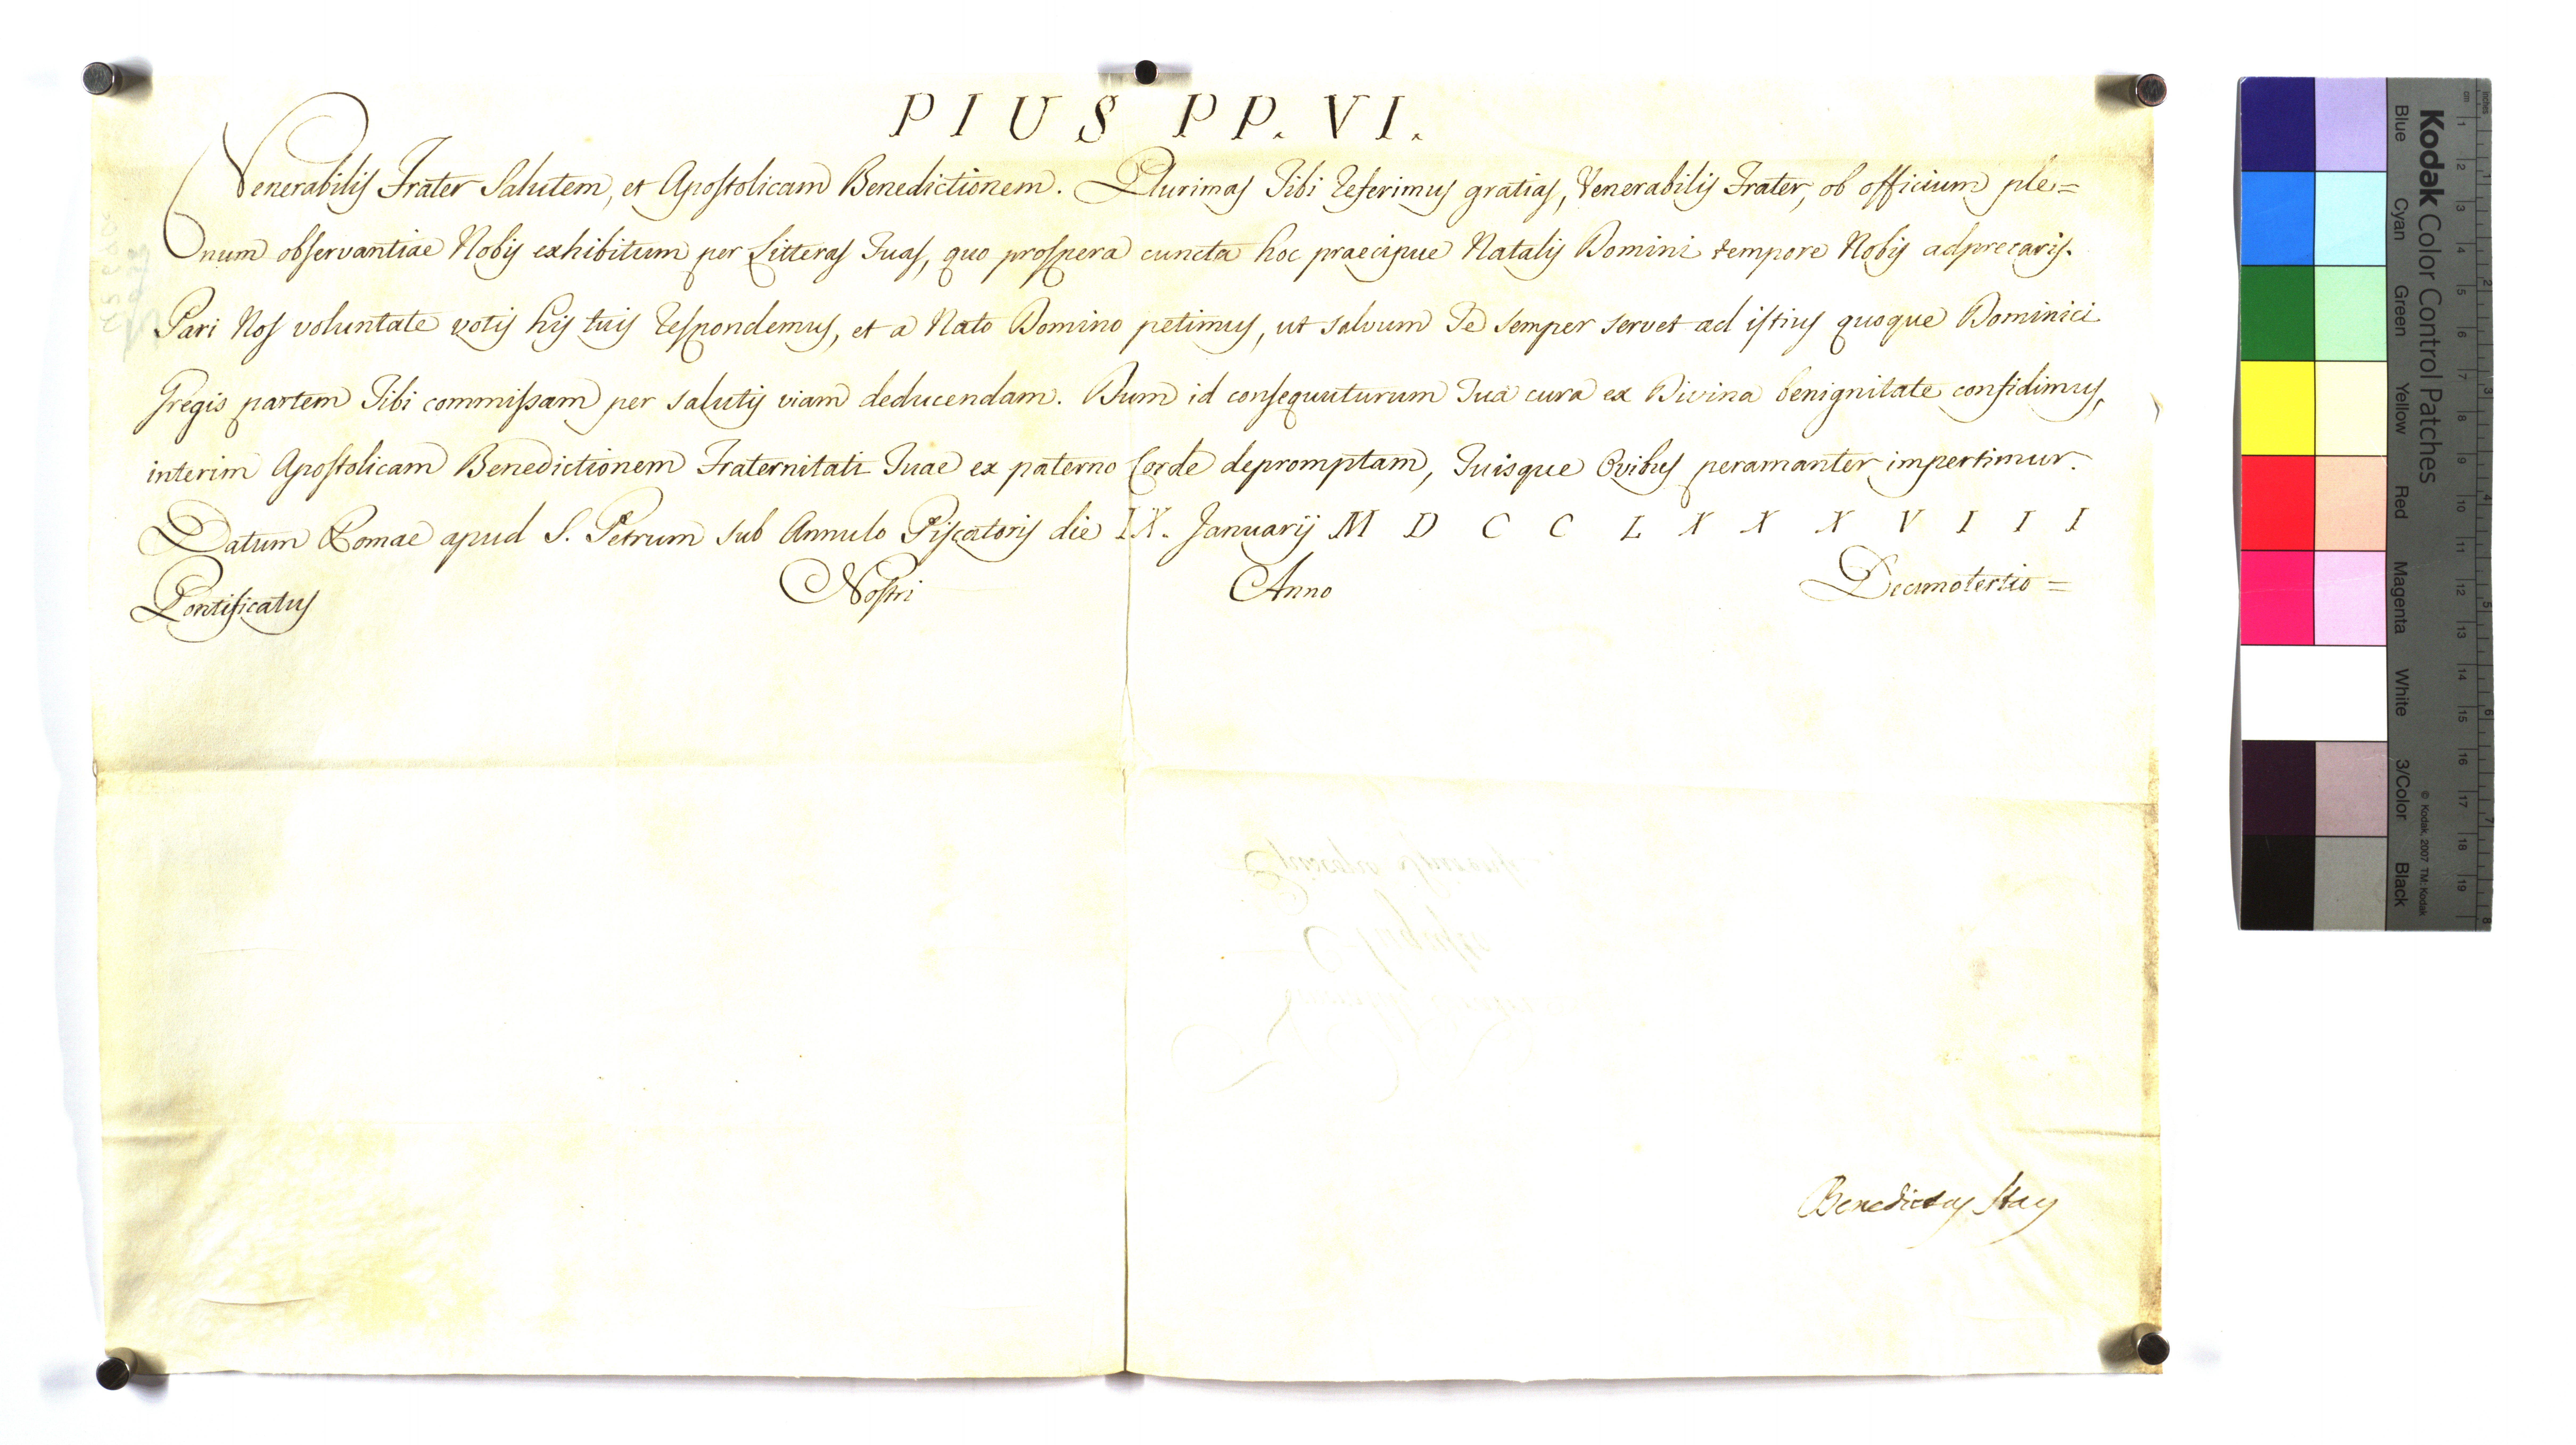 PIUS PP. VI.
Venerabilis Frater Salutem, et Apostolicam Benedictionem. Plurimas Tibi referimus gratias, Venerabilis Frater, ob officium ple=
num observantiae Nobis exhibitum per Litteras Tuas, quo prospera cuncta hoc praecipue Natalis Domini tempore Nobis adprecaris.
Pari Nos voluntate votis his tuis respondemus, et a Nato Domino petimus, ut salvum Te semper servet ad istius quoque Dominici
Gregis partem Tibi commissam per salutis viam deducendam. Dum id consequuturum Tua cura ex Divina benignitate confidimus,
interim Apostolicam Benedictionem Fraternitati Tuae ex paterno Corde depromptam, Tuisque Ovibus peramanter impertimur.
Datum Romae apud S. Petrum sub Annulo Piscatoris die IX. Januarij M D C C L X X X V I I I
Pontificatus Nostri Anno Decimotertio =
Benedictus Stay
Kodak Color Control Patches
Blue Cyan Green Yellow Red Magenta White 3/Color Black
© Kodak, 2007 TM: Kodak
inches 1 2 3 4 5 6 7 8
cm 1 2 3 4 5 6 7 8 9 10 11 12 13 14 15 16 17 18 19